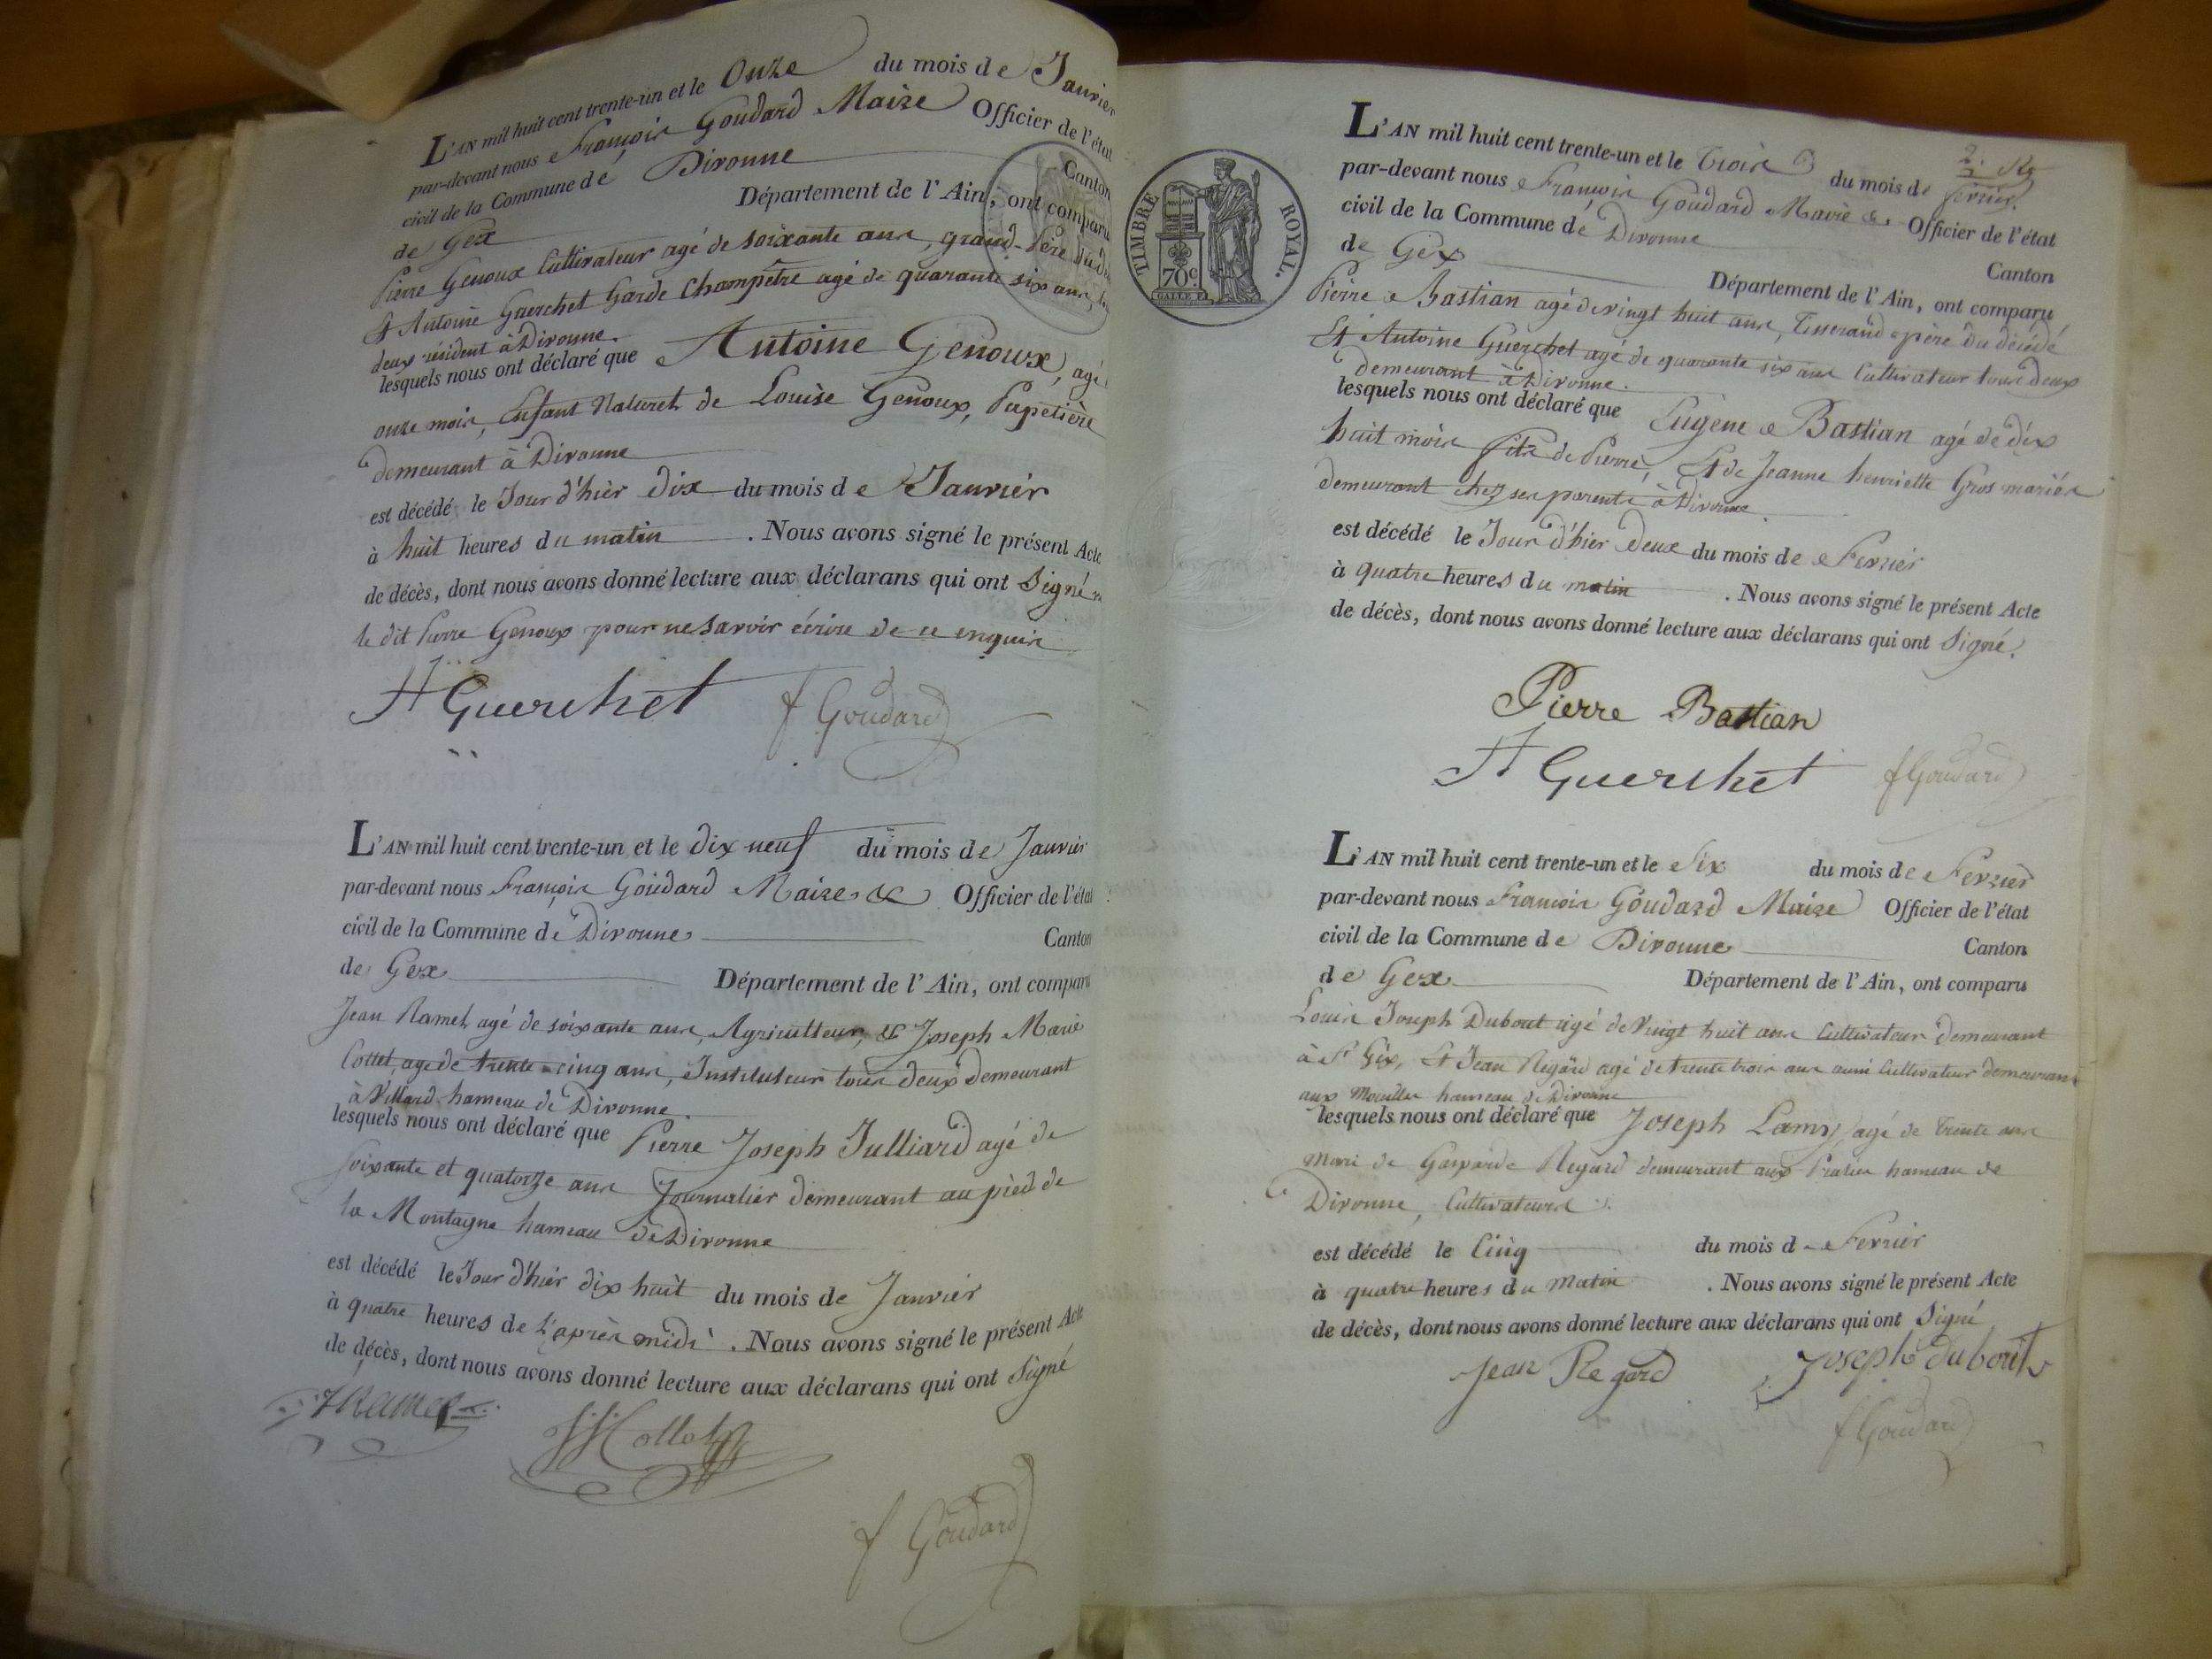 L'AN mil huit cent trente-un et le Onze du mois de Janvier
par-devant nous François Goudard Maire Officier de l'état
civil de la Commune de Divonne Canton
de Gex Département de l'Ain, ont comparu
Pierre Genoux Cultivateur agé de soixante ans, grand-Père du
Et Antoine Guerchet Garde Champêtre agé de quarante six ans,
deux résident à Divonne.
lesquels nous ont déclaré que Antoine Genoux, agé
onze mois, Enfant Naturel de Louise Genoux, Papetière
demeurant à Divonne
est décédé le Jour d'hier dix du mois de Janvier
à huit heures du matin . Nous avons signé le présent Acte
de décès, dont nous avons donné lecture aux déclarans qui ont Signé
le dit Pierre Genoux pour ne savoir écrire de ce enquis
A Guerchet f Goudard
L'AN mil huit cent trente-un et le dix neuf du mois de Janvier
par-devant nous François Goudard Maire &c Officier de l'état
civil de la Commune de Divonne Canton
de Gex Département de l'Ain, ont comparu
Jean Ramel, agé de soixante ans, Agriculteur, & Joseph Marie
Cottet, agé de trente cinq ans, Instituteur tous deux demeurant
à Villard hameau de Divonne.
lesquels nous ont déclaré que Pierre Joseph Julliard agé de
soixante et quatorze ans Journalier demeurant au pied de
la Montagne hameau de Divonne
est décédé le Jour d'hier dix huit du mois de Janvier
à quatre heures de l'après midi . Nous avons signé le présent Acte
de décès, dont nous avons donné lecture aux déclarans qui ont Signé
f Goudard
TIMBRE ROYAL.
70c
2
Février.
L'AN mil huit cent trente-un et le Trois du mois de
par-devant nous François Goudard Maire &c Officier de l'état
civil de la Commune de Divonne Canton
de Gex Département de l'Ain, ont comparu
Pierre Bastian agé de vingt huit ans, Tisserand père du décédé
Et Antoine Guerchet agé de quarante six ans Cultivateur tous deux
demeurant à Divonne.
lesquels nous ont déclaré que Eugène Bastian agé de dix
huit mois fils de Pierre, Et de Jeanne henriette Gros mariés
demeurant chez ses parents à Divonne
est décédé le Jour d'hier Deux du mois de Fevrier
à quatre heures du matin . Nous avons signé le présent Acte
de décès, dont nous avons donné lecture aux déclarans qui ont Signé.
Pierre Bastian
A Guerchet f Goudard
L'AN mil huit cent trente-un et le Six du mois de Fevrier
par-devant nous François Goudard Maire Officier de l'état
civil de la Commune de Divonne Canton
de Gex Département de l'Ain, ont comparu
Louis Joseph Dubout agé de Vingt huit ans Cultivateur demeurant
à St Gix, Et Jean Regard agé de trente trois ans aussi Cultivateur demeurant
aux hameau de Divonne
lesquels nous ont déclaré que Joseph Lamy agé de Trente ans
mari de Gasparde Regard demeurant aux hameau de
Divonne, Cultivateurs.
est décédé le Cinq du mois de Fevrier
à quatre heures du Matin . Nous avons signé le présent Acte
de décès, dont nous avons donné lecture aux déclarans qui ont Signé
Jean Regard Joseph Dubout
f Goudard